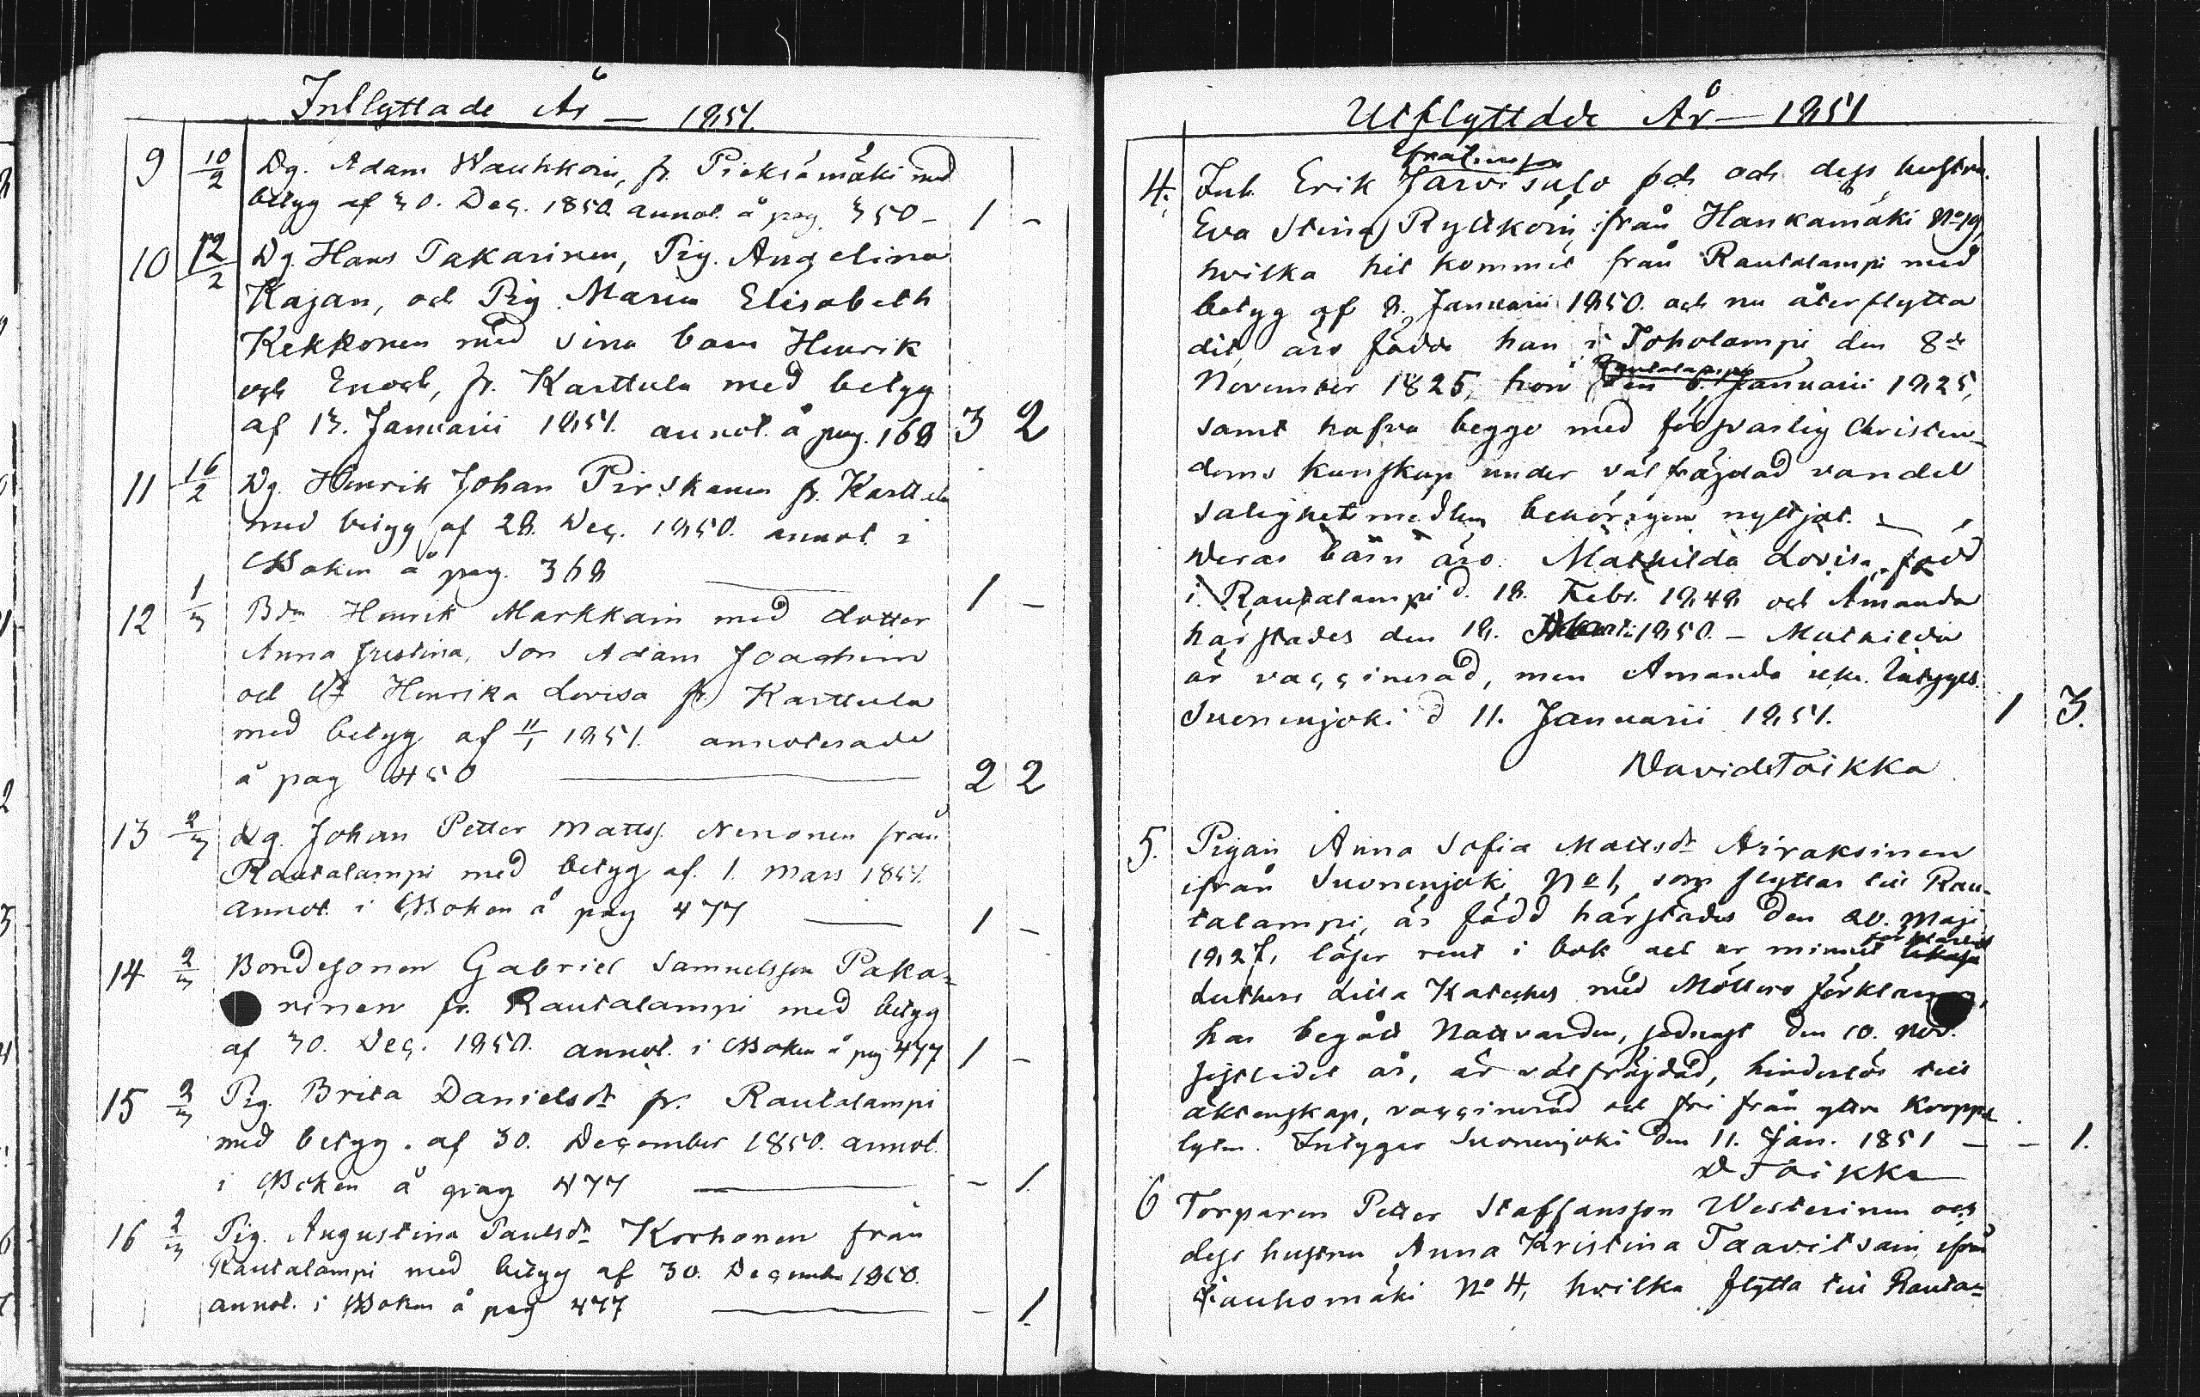 Inflyttade År — 1851.
9 10/2 Dg. Adam Wauhkoin, fr. Pieksämäki med
betyg af 30. Dec. 1850 annot. å pag. 350 - 1 -
10 12/2 Dg. Hans Takarinen, Pig. Angelina
Kajan, och Pig. Maria Elisabeth
Kekkonen med sina barn Henrik
och Enoch, fr. Karttula med betyg
af 13. Januarii 1851. annot. å pag. 168 3 2
11 16/2 Dg. Henrik Johan Pirskanen fr. Karttula
med betyg af 28. Dec. 1850. annot. i
Boken å pag. 368 1 -
12 1/3 Bdn Henrik Markkain med dotter
Anna Justina, Son Adam Joachim
och Henrika Lovisa fr Karttula
med betyg af 11/1 1851. annoterade
å pag 450 2 2
13 2/3 Dg. Johan Petter Mattss. Nenonen från
Rautalampi med betyg af. 1. Mars 1851.
annot. i Boken å pag 477 1 -
14 2/3 Bondesonen Gabriel Samuelsson Paka-
rinen fr. Rautalampi med betyg
af 30. Dec. 1850. annot. i Boken å pag 477 1 -
15 2/3 Pig. Brita Danielsdr fr. Rautalampi
med betyg. af 30. December 1850. annot.
i Boken å pag 477 - 1.
16 2/3 Pig. Augustina Paulsdr Korhonen från
Rautalampi med betyg af 30. December 1850.
annot. i Boken å pag 477 - 1.
Utflyttade År — 1851
4. Inh. Erik Järvisalo och dess hustru
Eva Stina Rytkoin, från Hankamäki No 19,
hvilka hit kommit från Rautalampi med
betyg af 8. Januarii 1850. och nu återflytta
dit, äro födde han i Toholampi den 8de
Rautalampi
November 1825, hon den 6. Januarii 1825,
samt hafva begge med försvarlig Christen-
doms kunskap under välfräjdad vandel
salighetsmedlen behörigen nyttjat. —
Deras barn äro Mathilda Lovisa, född
i Rautalampi d. 18. Febr. 1848 och Amanda
härstädes den 19. 1850. — Mathilda
är vaccinerad, men Amanda icke. Intygas.
Suonenjoki d 11. Januarii 1851. 1 3.
David Toikka
5. Pigan Anna Sofia Mattsdr Airaksinen
ifrån Suonenjoki No 1, som flyttar till Rau-
talampi, är född härstädes den 20. Maji
1827, läser rent i bok och ur minnet
Luthers Lilla Kateches med Möllers förklaring,
har begått Nattvarden, sednast den 10. Nov.
sistledet år, är välfräjdad, hinderlös till
äktenskap, vaccinerad och fri från yttre kropps
lyten. Intygar Suonenjoki den 11. Jan. 1851 — - 1.
D Toikka
6 Torparen Petter Staffansson Westerinen och
dess hustru Anna Kristina Taavitsain ifrån
Jauhomäki No 4, hvilka flytta till Rauta-